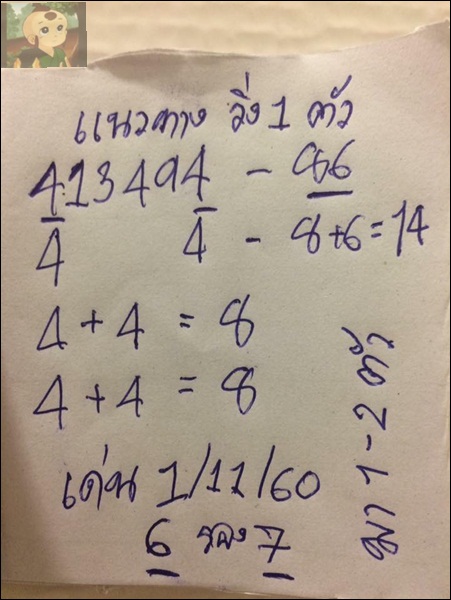 แนวทาง วิ่ง 1 ตัว
413494 - 86
4 4 - 8+6=14
4 + 4 = 8
4 + 4 = 8
เด่น 1/11/60
6 รอง 7
มา 1-2 ตัว